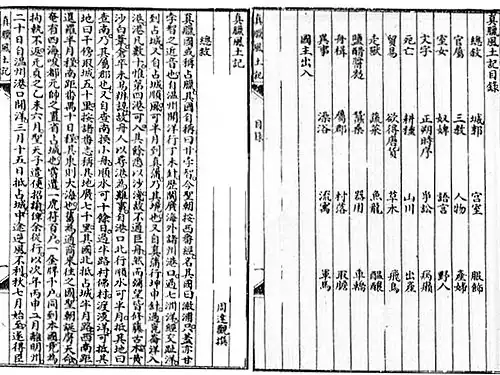 真臘風土記目錄
總敘 城郭 宮室 服飾
官屬 三教 人物 產婦
室女 奴婢 語言 野人
文字 正朔時序 爭訟 病癩
死亡 耕種 山川 出產
貿易 欲得唐貨 草木 飛鳥
走獸 蔬菜 魚龍 醞釀
鹽醋醬麴 蠶桑 器用 車轎
舟楫 屬郡 村落 取膽
異事 澡浴 流寓 軍馬
國主出入
真臘風土記 目錄
真臘風土記
周達觀撰
總敘
真臘國或稱占臘其國自稱曰甘孛智今聖朝按西番經名其國曰澉浦只蓋亦甘
孛智之近音也自溫州開洋行丁未針歷閩廣海外諸州港口過七洲洋經交趾洋
到占城又自占城順風可半月到真蒲乃其境也又自真蒲行坤申針過崑崙洋入
港港凡數十惟第四港可入其餘悉以沙淺故不通巨舟然而彌望皆修藤古木黃
沙白葦倉卒未易辨認故舟人以尋港為難事自港口北行順水可半月抵其地曰
查南乃其屬郡也又自查南換小舟順水可十餘日過半路村佛村渡淡洋可抵其
地曰干傍取城五十里按諸番志稱其地廣七千里其國北抵占城半月路西南距
暹羅半月程南距番禺十日程其東則大海也舊為通商來往之國聖朝誕膺天命
奄有四海唆都元帥之置省占城也嘗遣一虎符百戶一金牌千戶同到本國竟為
拘執不返元貞之乙未六月聖天子遣使招諭俾余從行以次年丙申二月離明州
二十日自溫州港口開洋三月十五日抵占城中途逆風不利秋七月始至遂得臣
真臘風土記